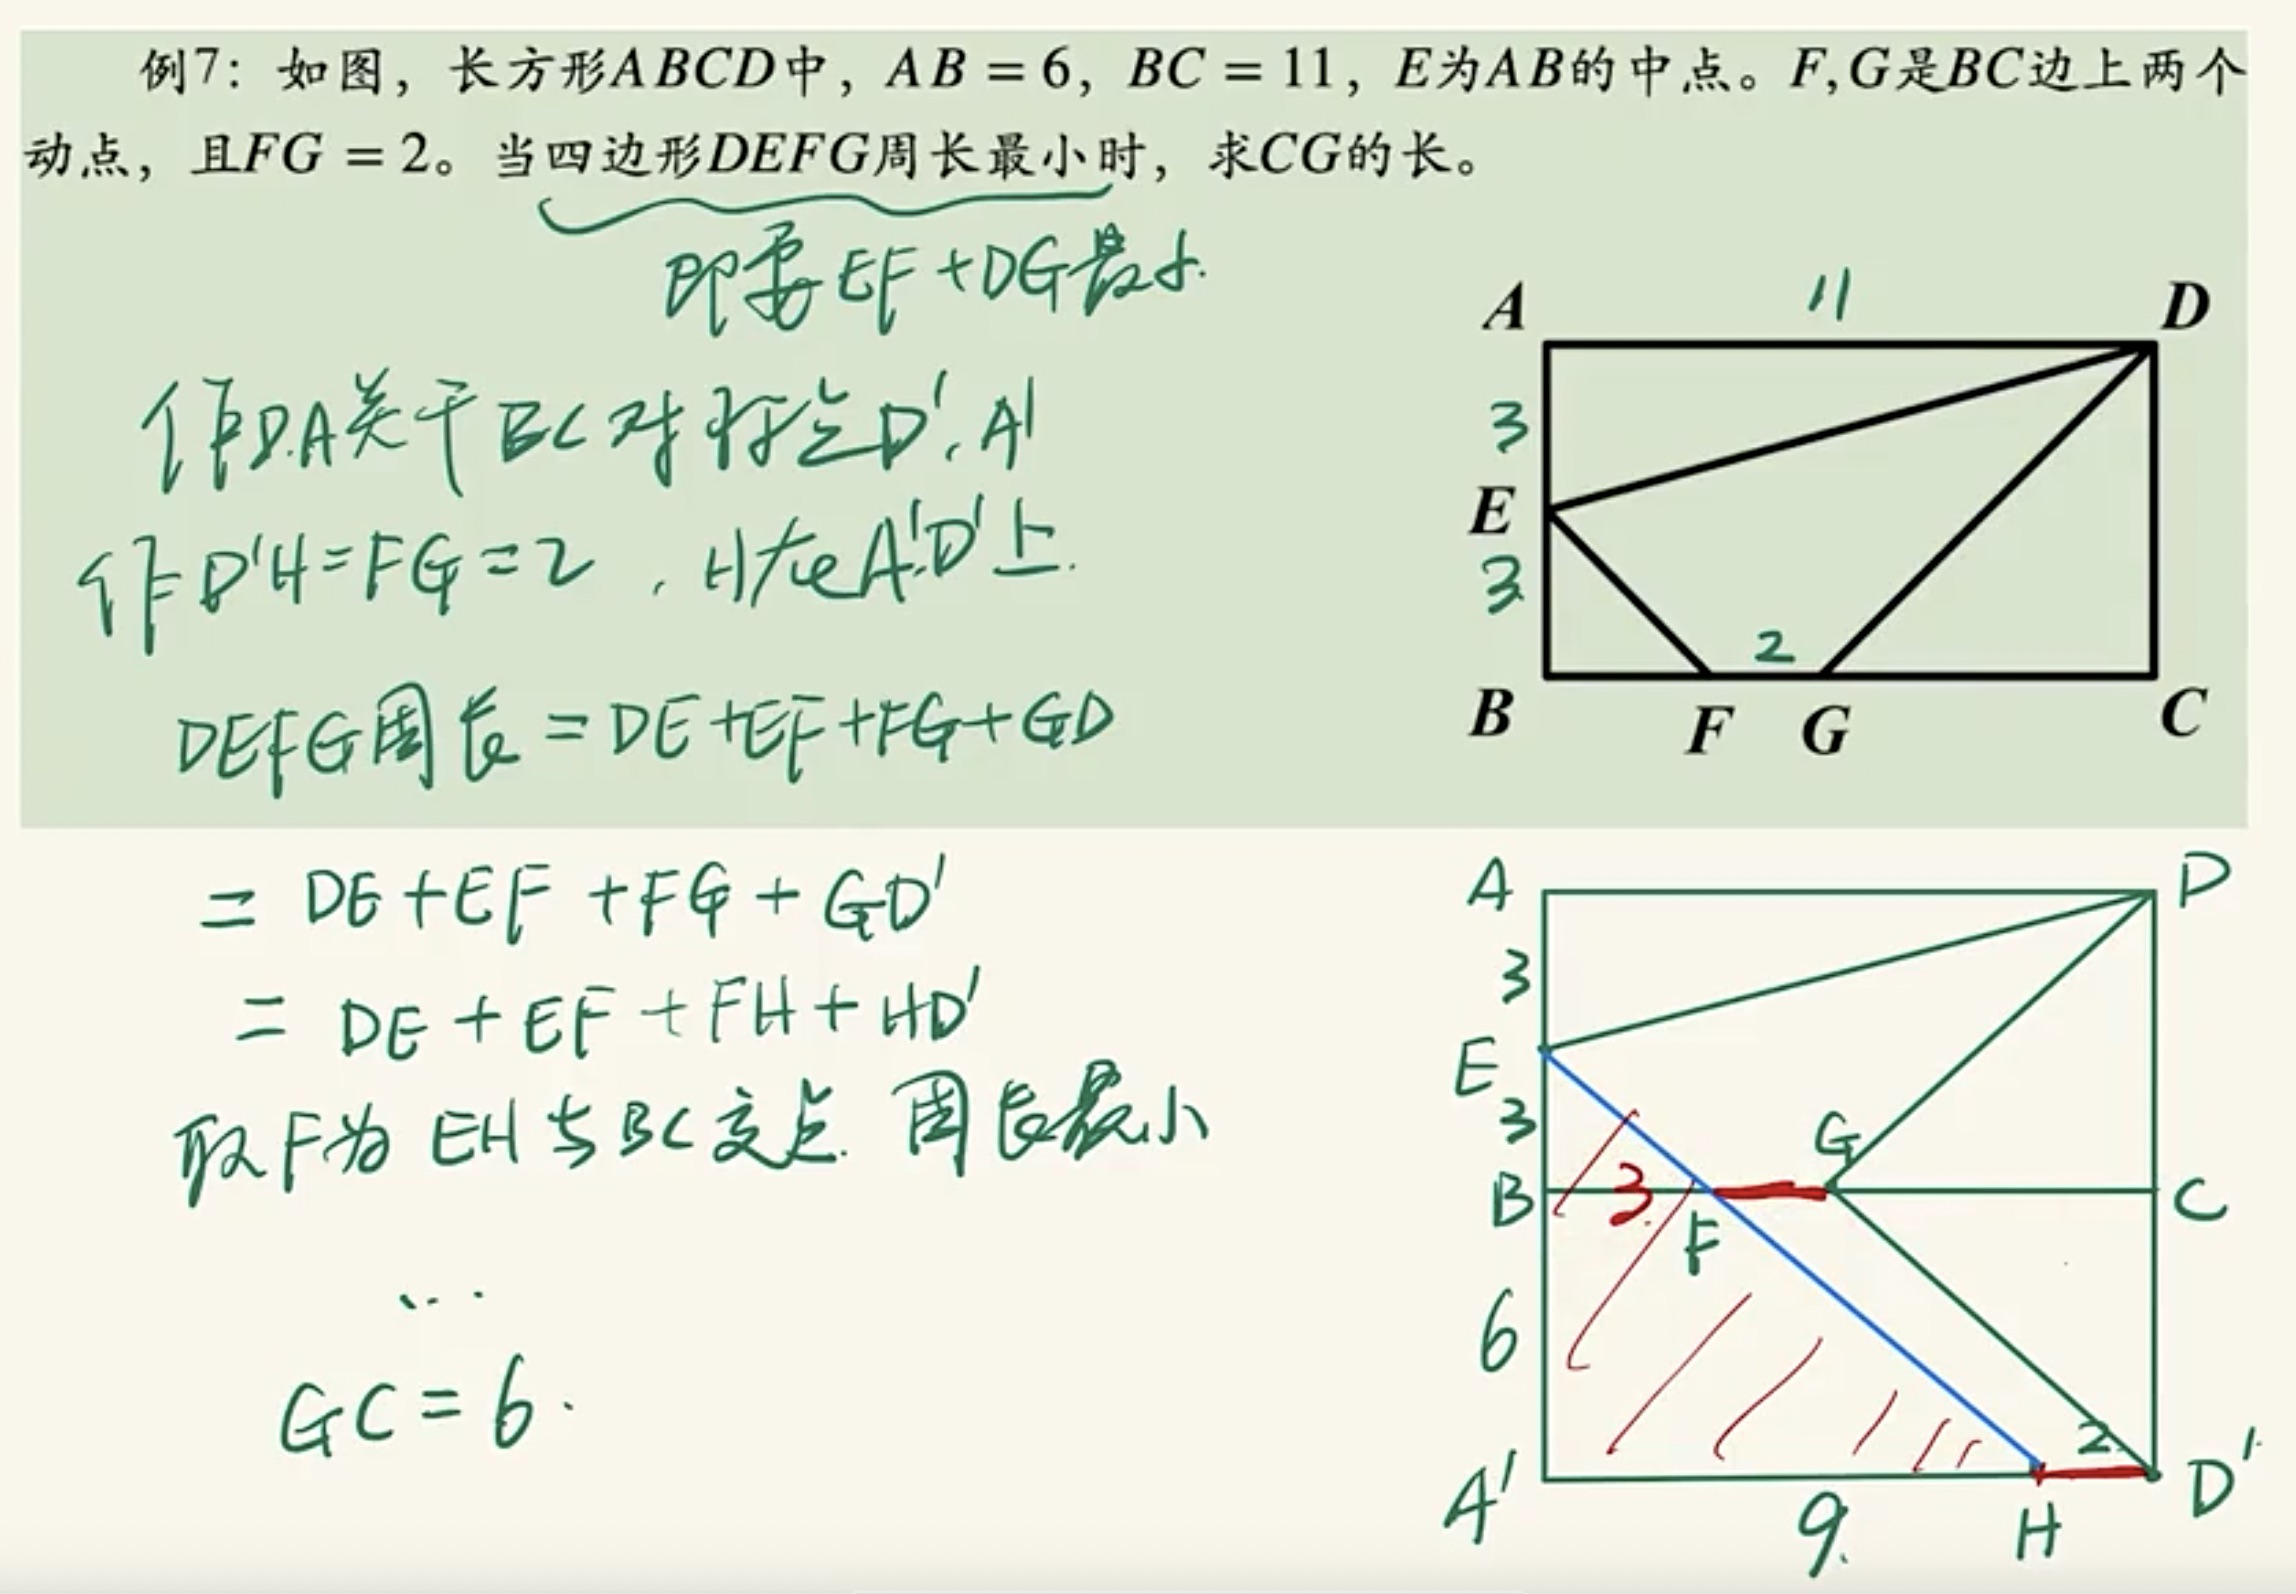 例7：如图，长方形ABCD中，AB = 6，BC = 11，E为AB的中点。F,G是BC边上两个
动点，且FG = 2。当四边形DEFG周长最小时，求CG的长。
即要EF+DG最小.
作D.A关于BC对称点D'、A'
作D'H=FG=2，H在A'D'上.
DEFG周长=DE+EF+FG+GD
A
11
D
3
E
3
2
B
F
G
C
= DE+EF+FG+GD'
= DE+EF+FH+HD'
取F为EH与BC交点. 周长最小
...
GC=6.
A
D
3
E
3
G
B
3.
F
C
6
2
A'
9.
H
D'